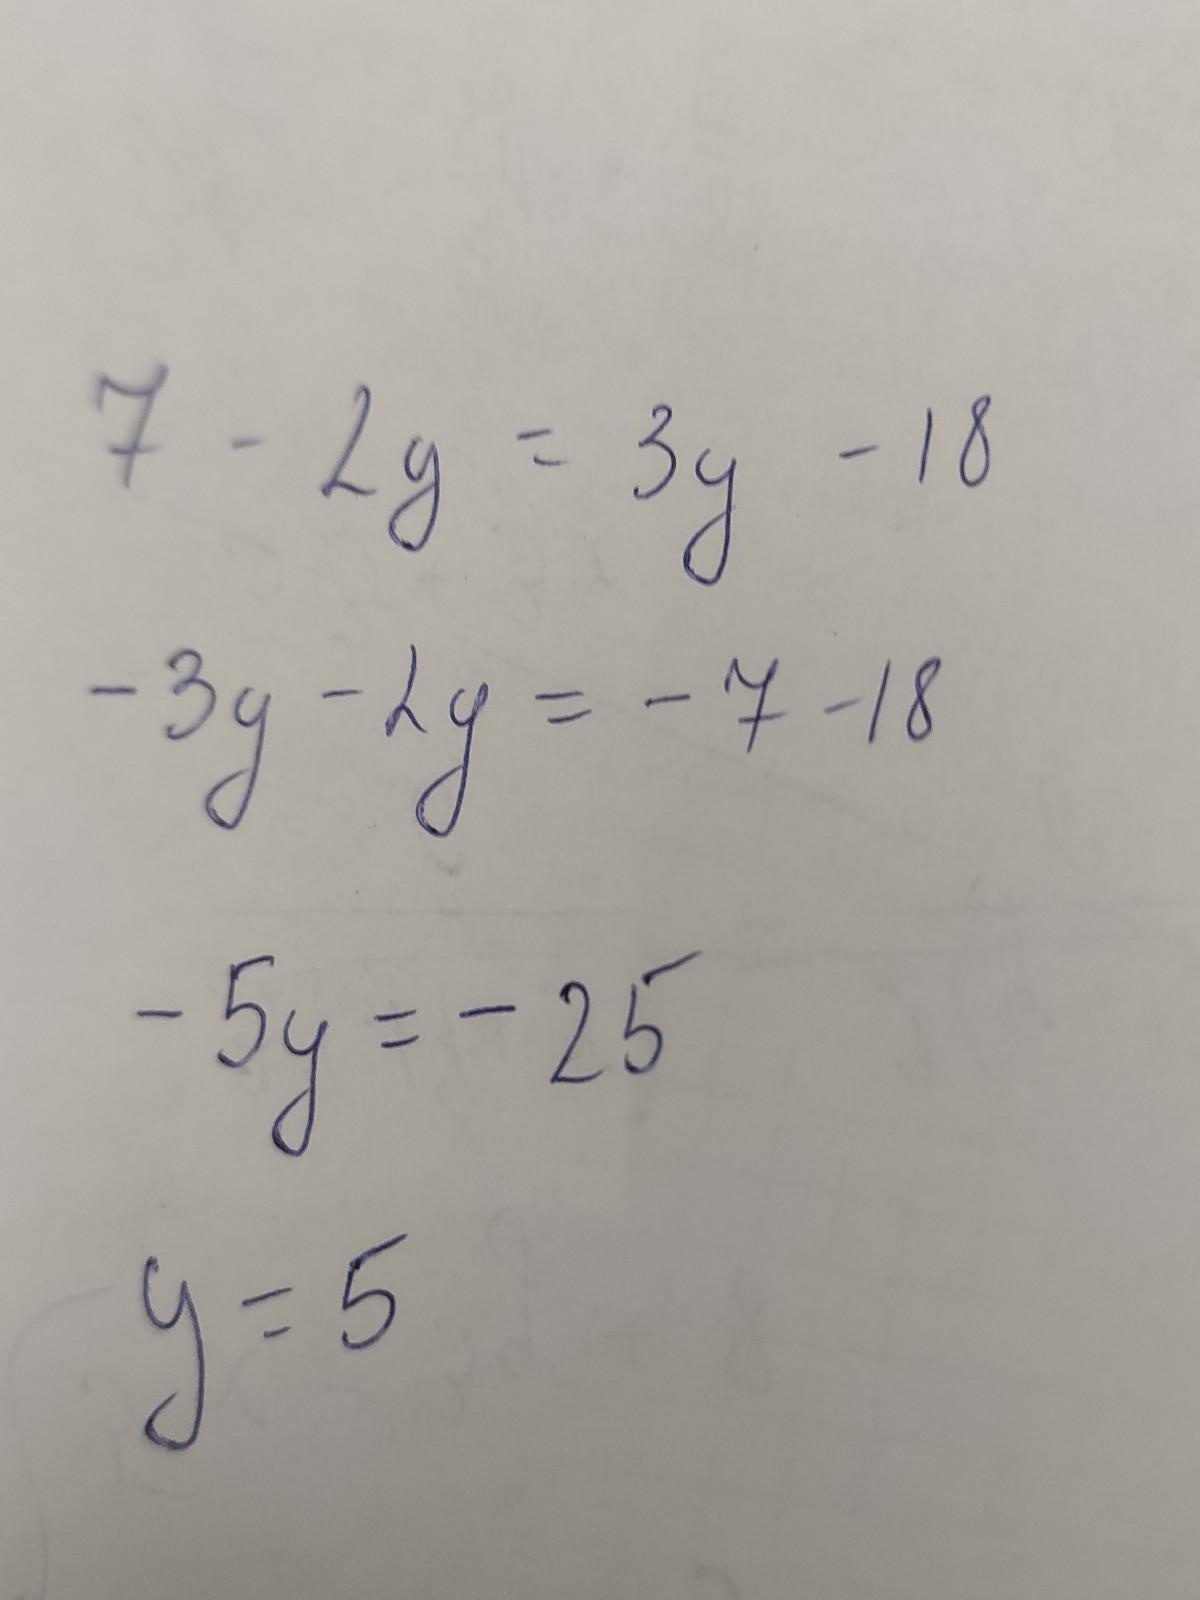 7 - 2y = 3y - 18
-3y - 2y = -7 - 18
-5y = -25
y = 5